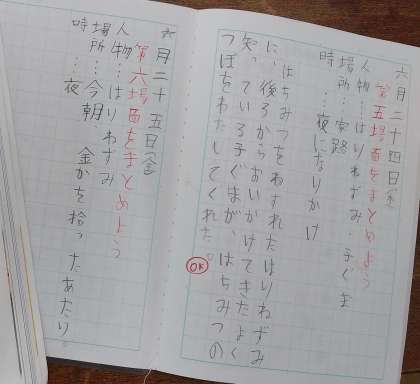 六月二十四日(木)
第五場面をまとめよう
人物…はりねずみ・子ぐま
場所…家路
時…夜になりかけ
はちみつをわすれたはりねずみ
に、後ろからおいかけてきたよく
知っている子ぐまが、はちみつの
つぼをわたしてくれた。
OK
六月二十五日(金)
第六場面をまとめよう
人物…はりねずみ
場所…今朝 金かを拾ったあたり
時…夜